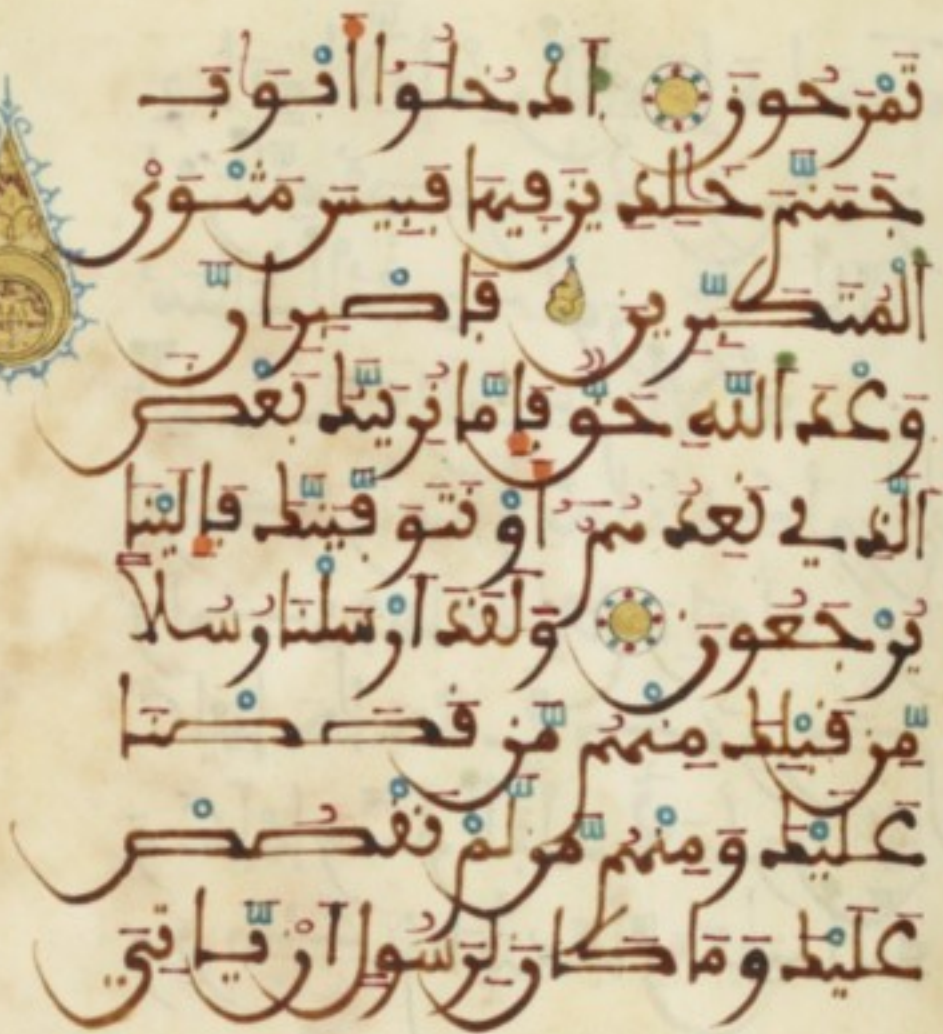 تَمْرَحُونَ ادْخُلُوا أَبْوَابَ
جَهَنَّمَ خَالِدِينَ فِيهَا فَبِيسَ مَثْوَى
الْمُتَكَبِّرِينَ فَاصْبِرْ إِنَّ
وَعْدَ اللَّهِ حَقٌّ فَإِمَّا نُرِيَنَّكَ بَعْضَ
الَّذِي نَعِدُهُمْ أَوْ نَتَوَفَّيَنَّكَ فَإِلَيْنَا
يُرْجَعُونَ وَلَقَدْ أَرْسَلْنَا رُسُلًا
مِّن قَبْلِكَ مِنْهُم مَّن قَصَصْنَا
عَلَيْكَ وَمِنْهُم مَّن لَّمْ نَقْصُصْ
عَلَيْكَ وَمَا كَانَ لِرَسُولٍ أَنْ يَّاتِيَ